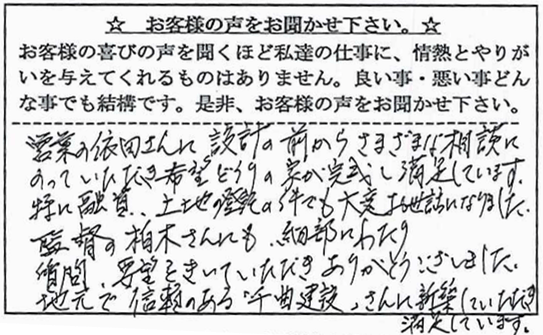 ☆ お客様の声をお聞かせ下さい。☆
お客様の喜びの声を聞くほど私達の仕事に、情熱とやりが
いを与えてくれるものはありません。良い事・悪い事どん
な事でも結構です。是非、お客様の声をお聞かせ下さい。
営業の依田さんに設計の前からさまざまな相談に
のっていただき希望どうりの家が完成し満足しています。
特に融資、土地の登記の件でも大変お世話になりました。
監督の柏木さんにも、細部にわたり
質問、要望をきいていただきありがとうございました。
地元で信頼のある"千曲建設"さんに新築していただき
満足しています。